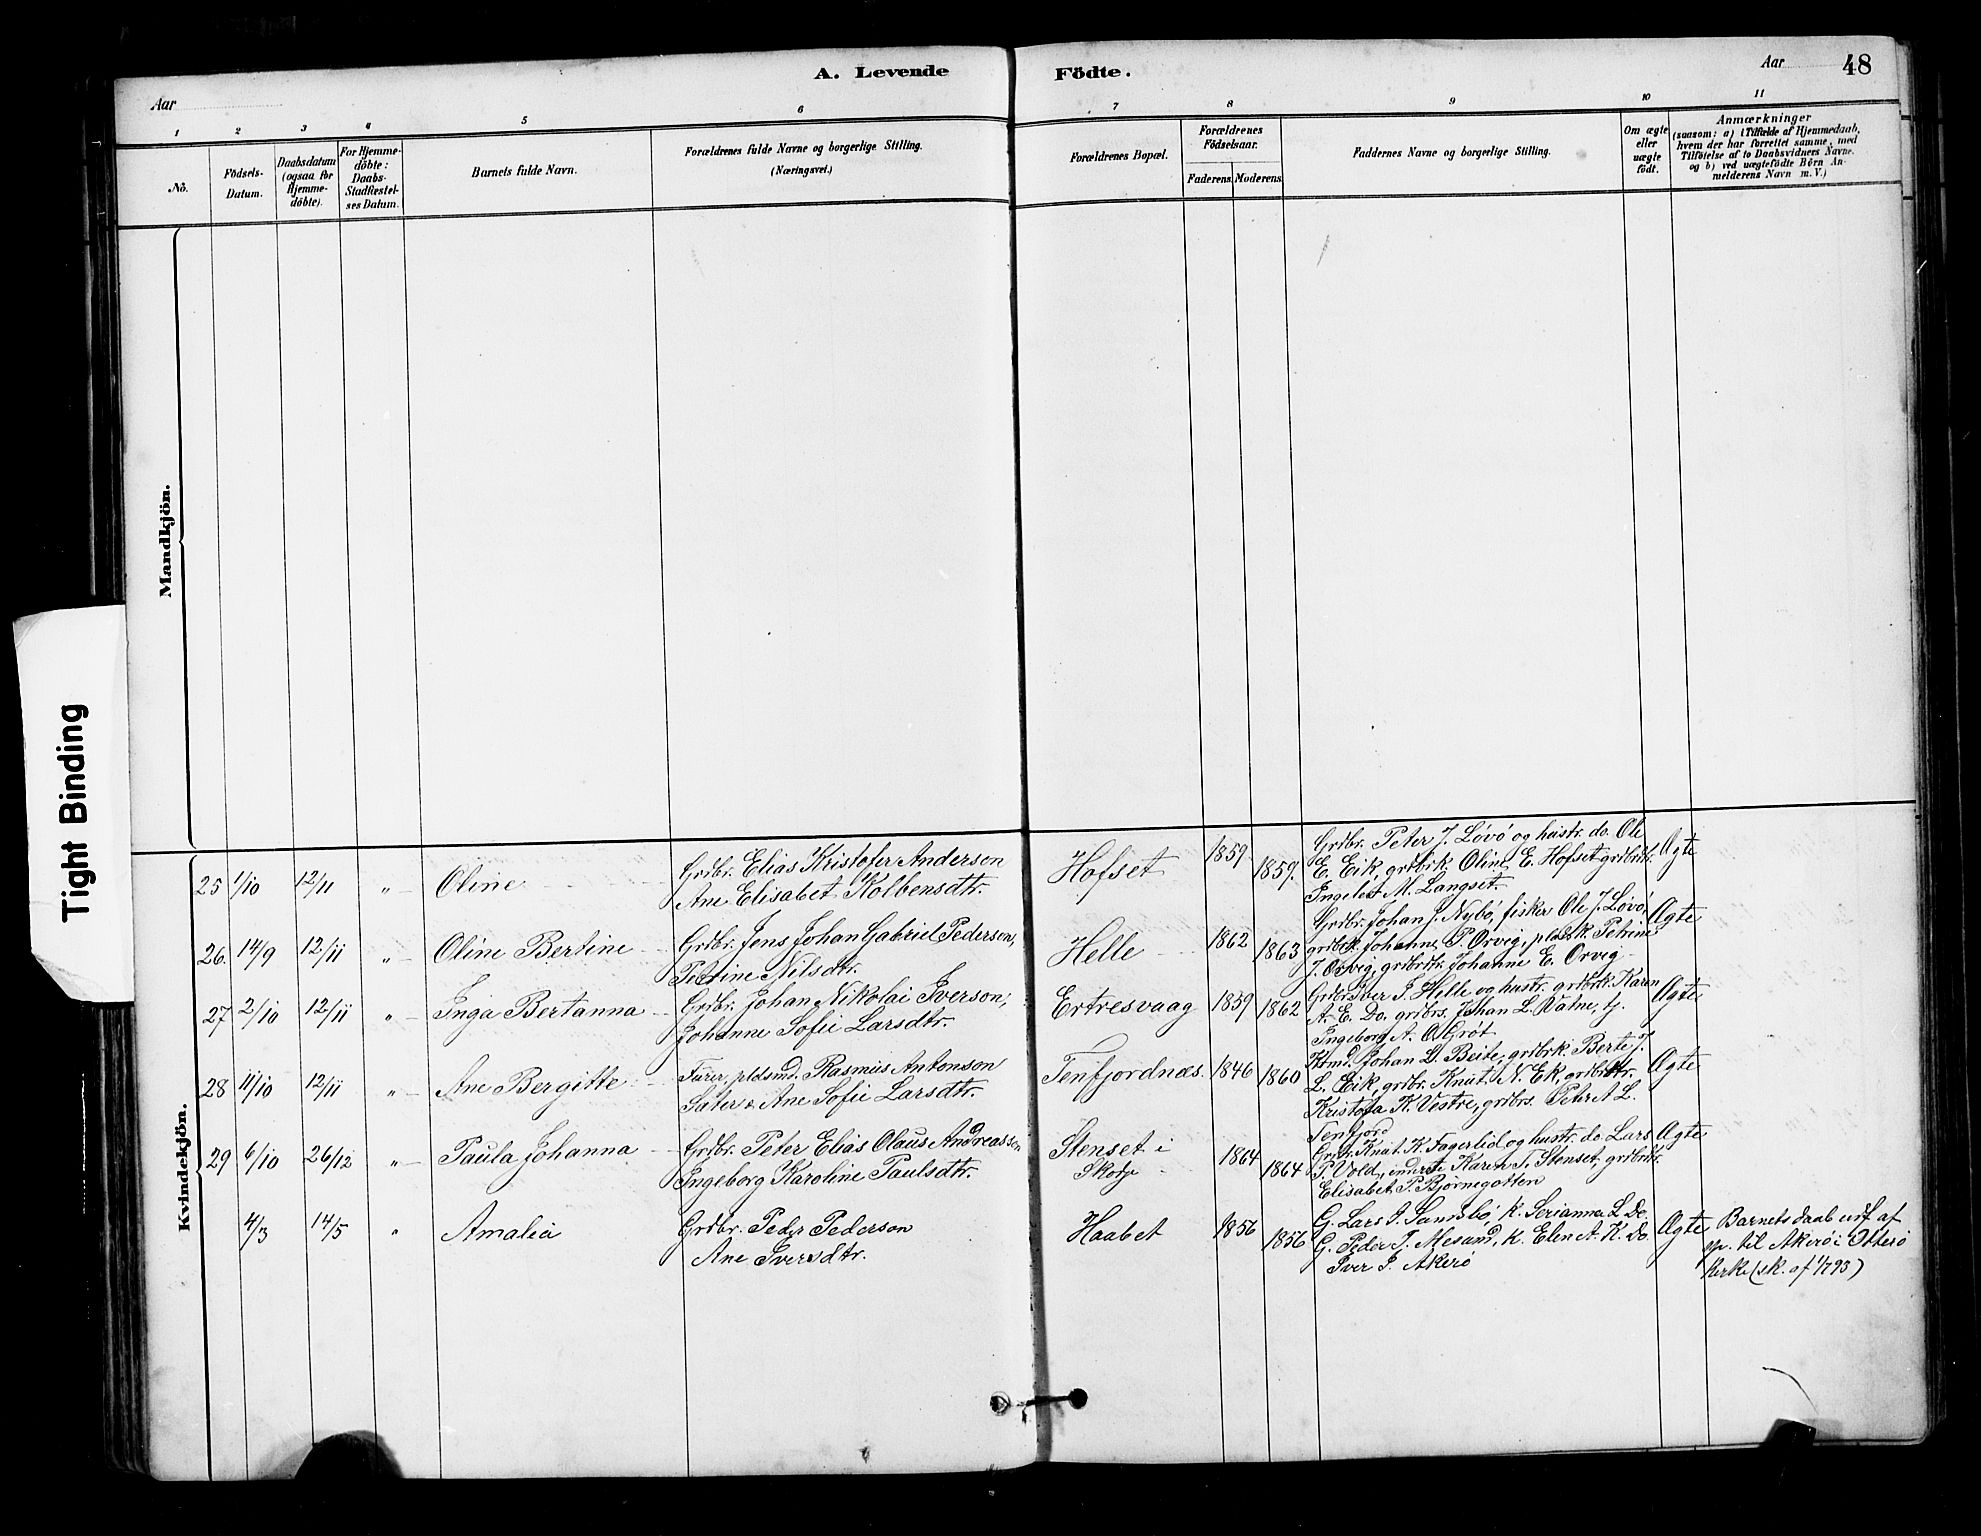 A. Levende Födte.
Aar
Aar 48
1 2 3 4 5 6 7 8 9 10 11
No.
Födsels-
Datum.
Daabsdatum
(ogsaa for
Hjemme-
döbte).
For Hjemme-
döbte:
Daabs-
Stadfestel-
ses Datum.
Barnets fulde Navn.
Forældrenes fulde Navne og borgerlige Stilling.
(Næringsvei.)
Forældrenes Bopæl.
Forældrenes
Födselsaar.
Faderens. Moderens.
Faddernes Navne og borgerlige Stilling.
Om ægte
eller
uægte
født.
Anmærkninger
(saasom: a) i Tilfælde af Hjemmedaab,
hvem der har forrettet samme, med
Tilföielse af to Daabsvidners Navne.
og b) ved uægtefödte Börn An-
melderens Navn m. V.)
Mandkjön.
Tight Binding
Kvindekjön.
25 1/10 12/11 " Oline
Grdbr. Elias Kristofer Anderson
Ane Elisabet Kolbensdtr.
Hofset 1859 1859.
Grdbr. Peter J. Løvø og hustr. do. Ole
E. Eik, grdbrk. Oline E. Hofset grdbrdtr.
Ingelev M. Langset.
Ægte
26. 14/9 12/11 " Oline Bertine
Grdbr. Jens Johan Gabriel Pederson,
Petrine Nilsdtr.
Helle 1862 1863
Grdbr. Johan J. Nybø, fisker Ole J. Løvø,
grdbrk. Johanne P. Orvig, pladsk. Petrine
J. Orvig, grdbrdtr. Johanne E. Orvig
Ægte
27 2/10 12/11 " Inga Bertanna
Grdbr. Johan Nikolai Iverson,
Johanne Sofie Larsdtr.
Ertresvaag 1859 1862
Grdbr. Iver I. Helle og hustr. grdbrk. Karen
A. E. Do. grdbrs. Johan L. Vatne, tj.
Ingeborg A. O. Grøt
Ægte
28 11/10 12/11 " Ane Bergitte
Furer, pldsmd. Rasmus Antonson
Sæter & Ane Sofie Larsdtr.
Tenfjordnæs. 1846 1860
Kmd. Johan D. Beite, grdbrk. Berte J.
L. Eik, grdbr. Knut N. Ek, grdbrdtr.
Kristofa K. Vestre, grdbrs. Peter A L.
Tenfjord
Ægte
29 6/10 26/12 " Paula Johanna
Grdbr. Peter Elias Olaus Andreassen
Ingeborg Karoline Paulsdtr.
Stenset i
Skodje
1864 1864
Grdbr. Knut K. Fagerlid og hustr. do. Lars
P. Vold, inderste Karen T. Stenset, grdbrdtr.
Elisabet P. Bjørnegotten
Ægte
4/3 14/5 " Amalia
Grdbr. Peder Pederson
Ane Iversdtr.
Haabet 1856 1856
G. Lars I. Sandsbø K. Serianna L. Do.
G. Peder T. Mesund, K. Elen A. K. Do.
Iver I. Akerø
Ægte
Barnets daab udf af
sp. til Akerø i Otterø
kirke (sk. af 1/7 93)